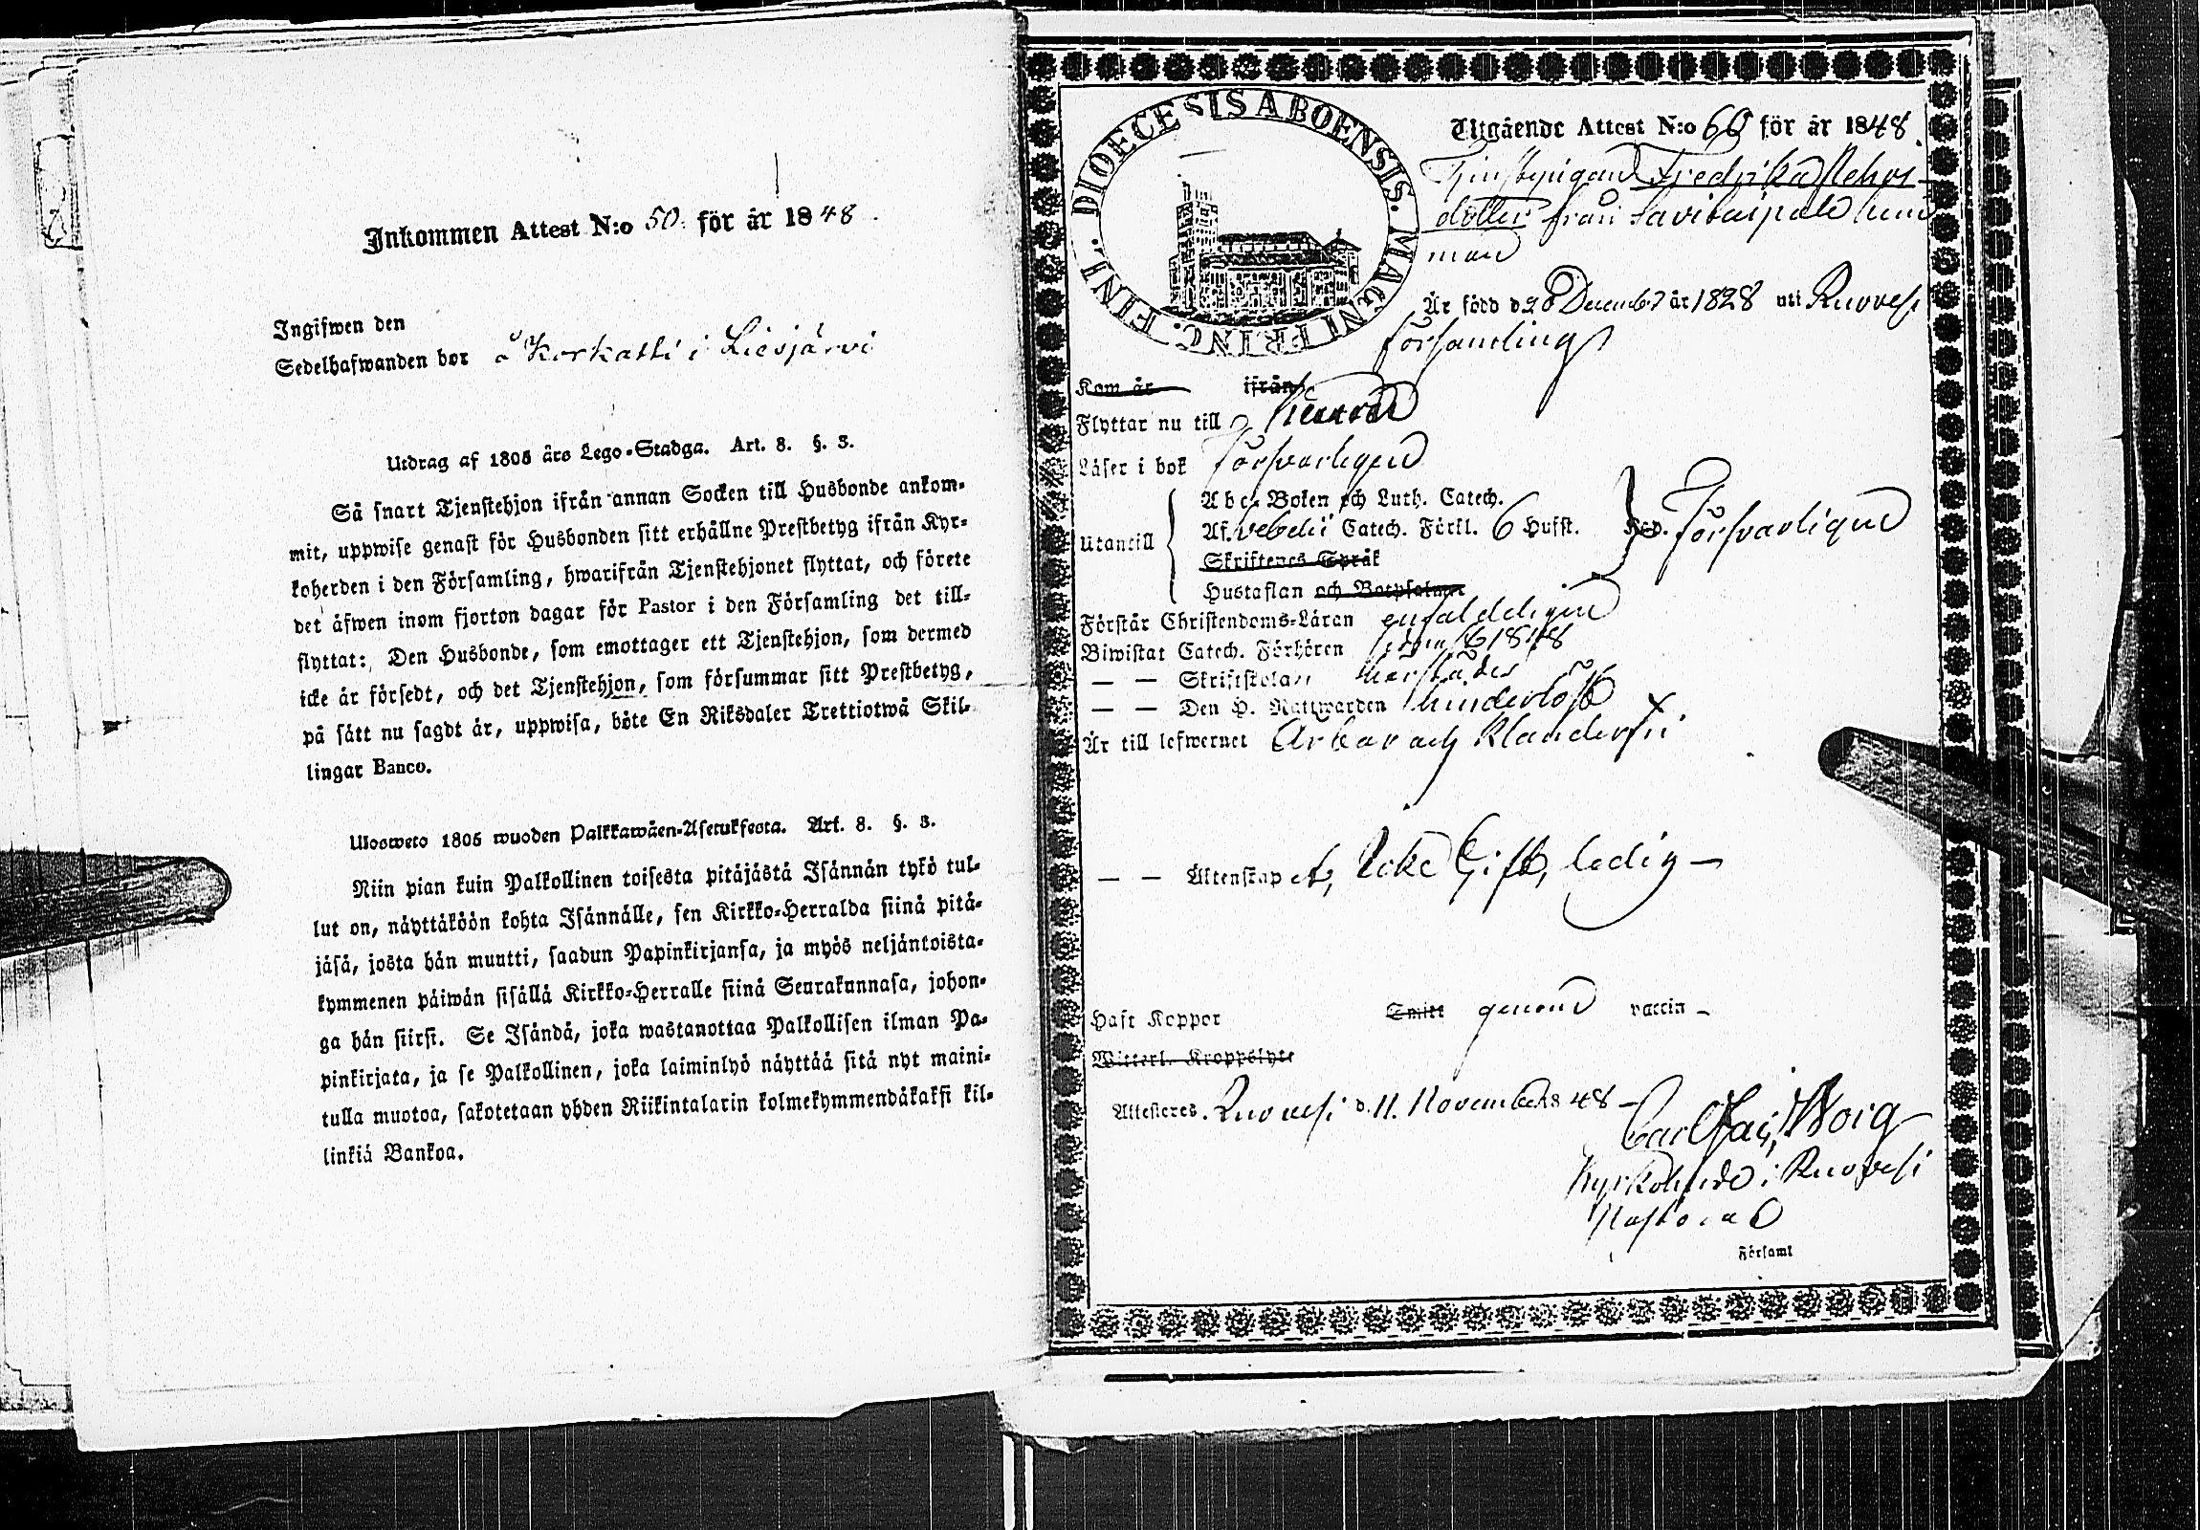 Inkommen Attest N:o 50. för år 1848.
Ingifwen den
Sedelhafwanden bor å Korkatti i Liesjärvi
Utdrag af 1805 års Lego-Stadga. Art. 8. §. 3.
Så snart Tjenstehjon ifrån annan Socken till Husbonde ankom-
mit, uppwise genast för Husbonden sitt erhållne Prestbetyg ifrån Kyr-
koherden i den Församling, hwarifrån Tjenstehjonet flyttat, och förete
det äfwen inom fjorton dagar för Pastor i den Församling det till-
flyttat: Den Husbonde, som emottager ett Tjenstehjon, som dermed
icke är försedt, och det Tjenstehjon, som försummar sitt Prestbetyg,
på sätt nu sagdt är, uppwisa, böte En Riksdaler Trettiotwå Skil-
lingar Banco.
Ulosweto 1805 wuoden Palkkawäen-Asetuksesta. Art. 8. §. 3.
Niin pian kuin Palkollinen toisesta pitäjästä Isännän tykö tul-
lut on, näyttäköön kohta Isännälle, sen Kirkko-Herralda siinä pitä-
jäsä, josta hän muutti, saadun Papinkirjansa, ja myös neljäntoista-
kymmenen päiwän sisällä Kirkko-Herralle siinä Seurakunnasa, johon-
ga hän siirsi. Se Isändä, joka wastanottaa Palkollisen ilman Pa-
pinkirjata, ja se Palkollinen, joka laiminlyö näyttää sitä nyt maini-
tulla muotoa, sakotetaan yhden Riikintalarin kolmekymmendäkaksi kil-
linkiä Bankoa.
DIOECESIS ABOENSIS. MAGNI PRINC. FINL.
Utgående Attest N:o 60 för år 1848
Fredrika
dotter från
Är född d. 28 December år 1828 uti Ruovesi
församling
Kom år ifrån
Flyttar nu till
Läser i bok försvarligen
Utantill
Abc-Boken och Luth. Catech.
Af Svebelii Catech. Förkl. 6 Hufst. försvarligen
Skriftenes Språk
Hustaflan och Botpsalmer
Förstår Christendoms-Läran enfaldeligen
Biwistat Catech. Förhören 1848
— — Skriftskolan
— — Den H. Nattwarden hinderlös
Är till lefwernet ärbar och klanderfri
— — Äktenskapet, Icke Gift, ledig —
Haft Koppor Smitt genom vaccin —
Witterl. Kroppslyte
Attesteras. Ruovesi d. 11. November 1848 —
Carl
Kyrkoherde i Ruovesi
Pastorat
Församl